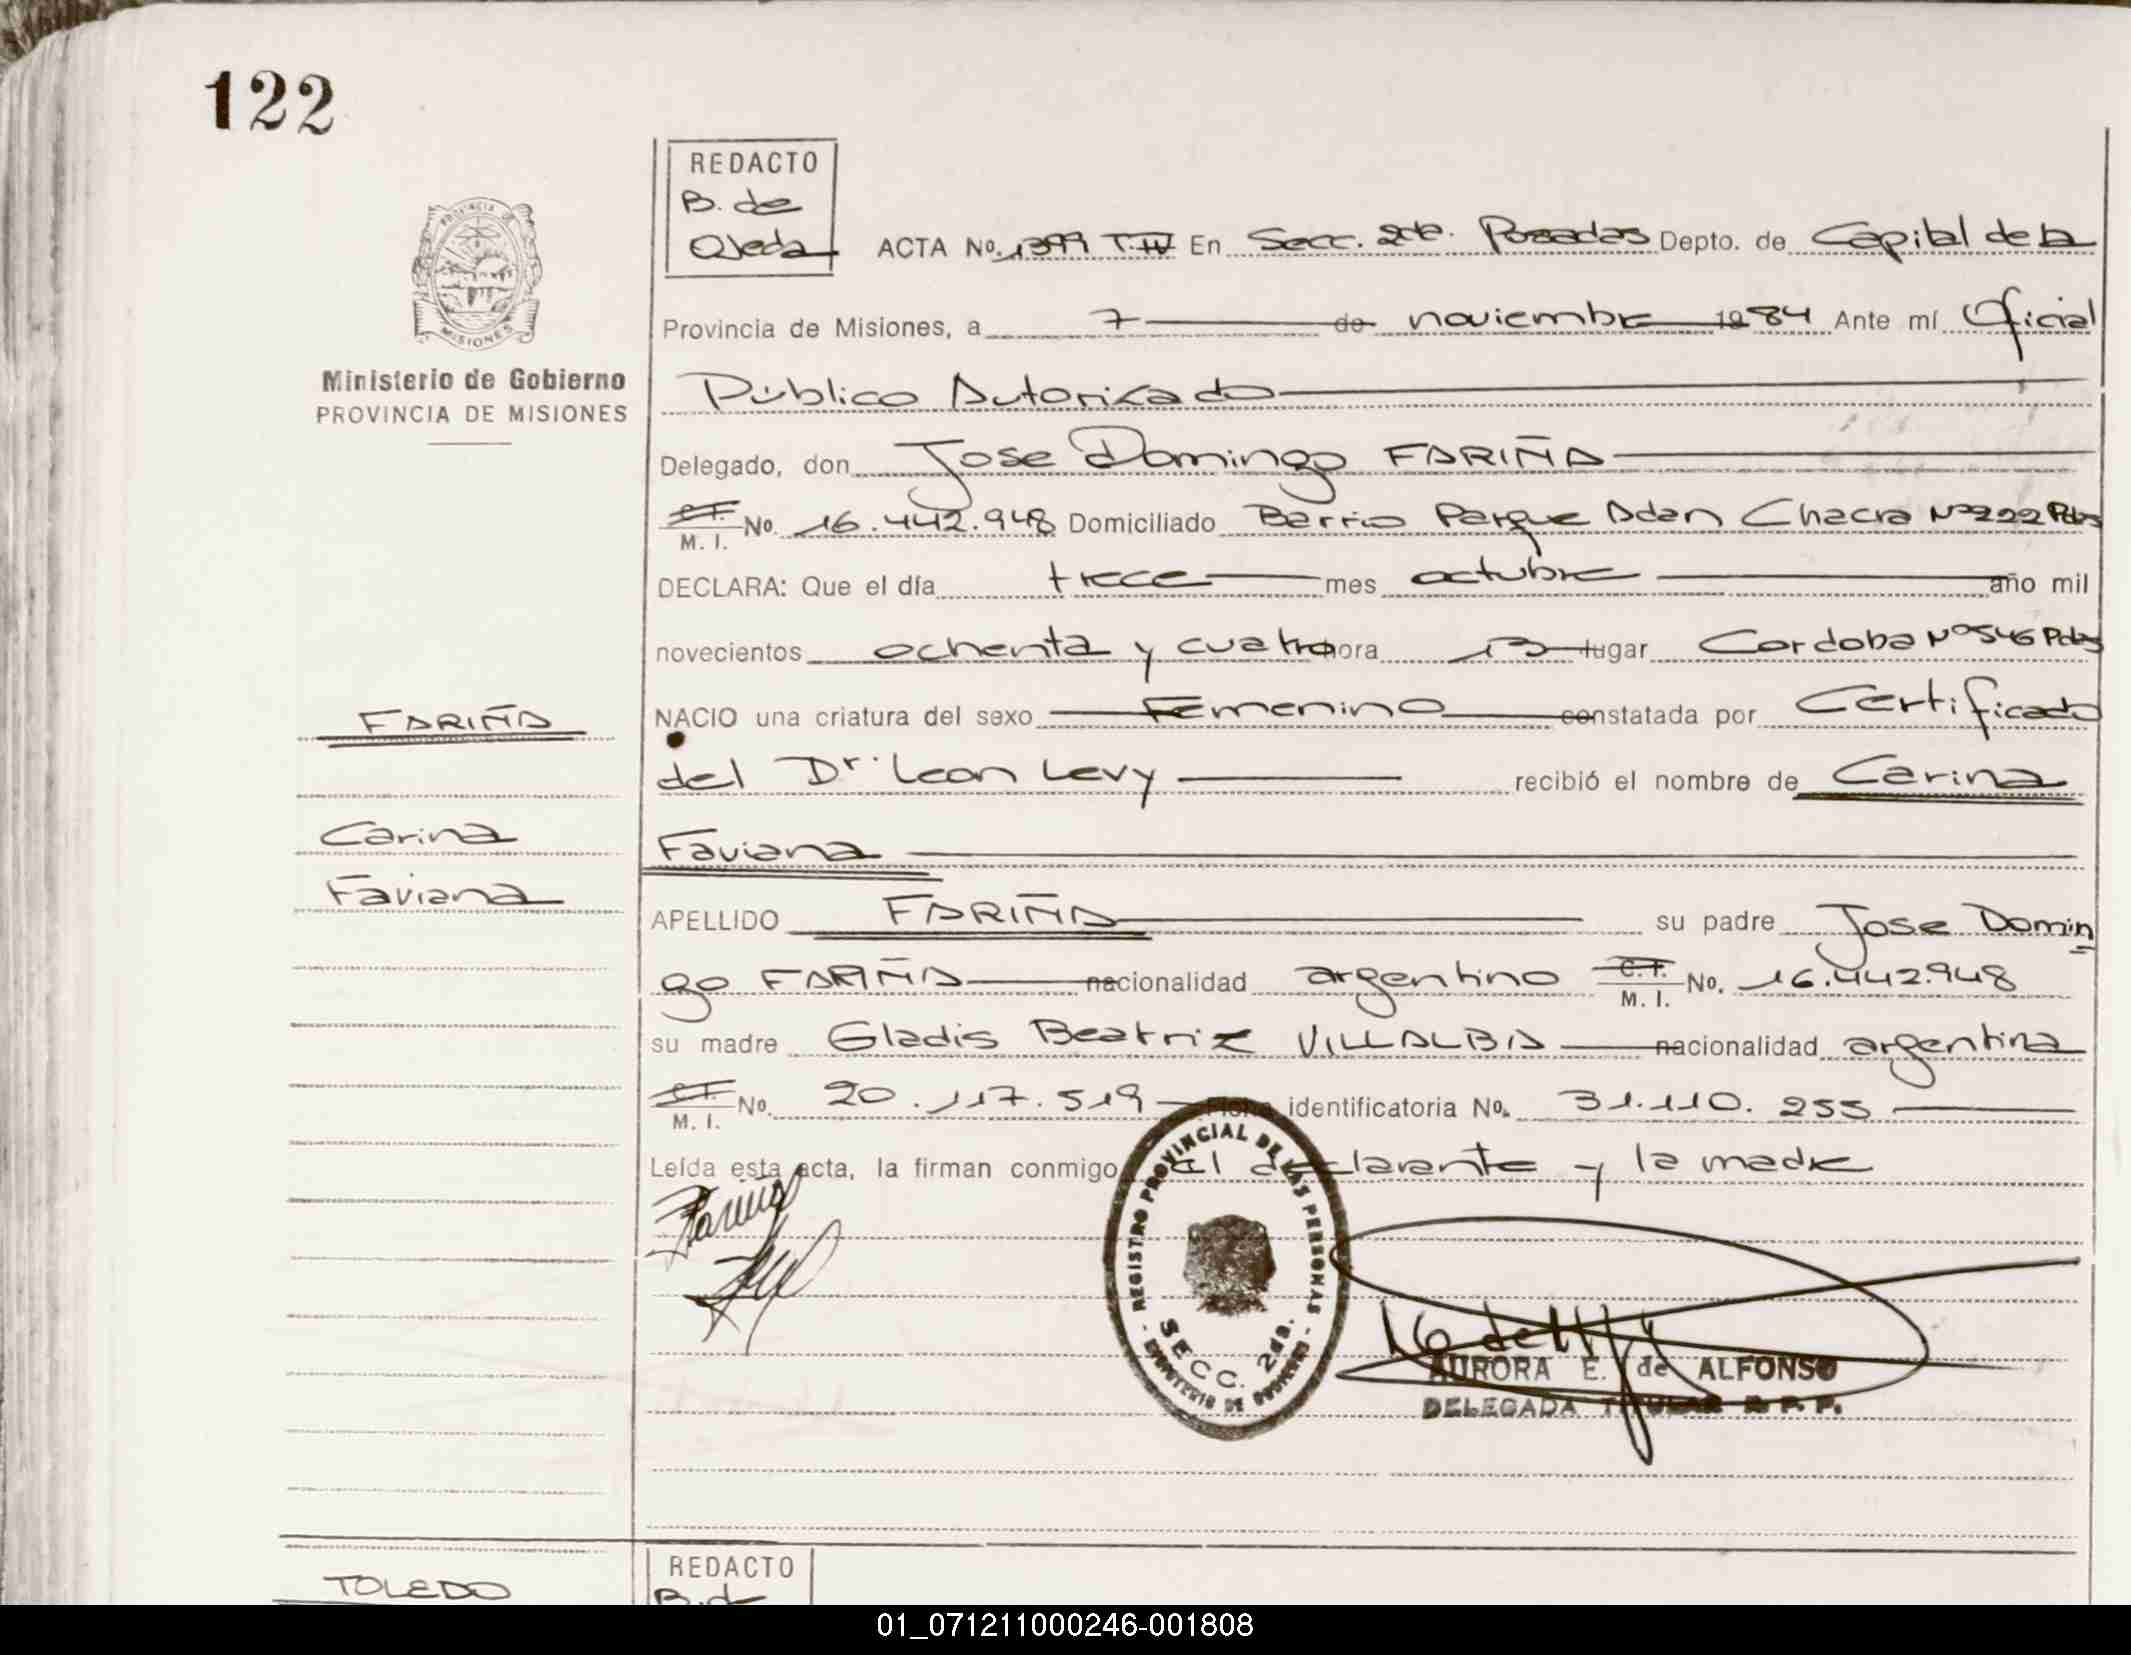 122
PROVINCIA DE
MISIONES
Ministerio de Gobierno
PROVINCIA DE MISIONES
REDACTO
B. de
Ojeda
ACTA No. 1399 T.IV En Secc. 2da. Posadas Depto. de Capital de la
Provincia de Misiones, a 7 de noviembre 1984 Ante mí Oficial
Público Autorizado
Delegado, don Jose Domingo FARIÑA
C.I. M. I. No. 16.442.948 Domiciliado Barrio Parque Adan Chacra Nº 222 Pdas
DECLARA: Que el día trece mes octubre año mil
novecientos ochenta y cuatro hora 13 lugar Cordoba Nº 546 Pdas
FARIÑA
NACIO una criatura del sexo Femenino constatada por Certificado
del Dr. Leon Levy recibió el nombre de Carina
Carina
Faviana
Faviana
APELLIDO FARIÑA su padre Jose Domin
go FARIÑA nacionalidad argentino C.I. M. I. No. 16.442.948
su madre Gladis Beatriz VILLALBA nacionalidad argentina
C.I. M. I. No. 20.117.519 Ficha identificatoria No. 31.110.255
Leída esta acta, la firman conmigo el declarante y la madre
Fariña
REGISTRO PROVINCIAL DE LAS PERSONAS
SECC. 2da.
MINISTERIO DE GOBIERNO
AURORA E. de ALFONSO
DELEGADA TITULAR R. P. P.
TOLEDO
REDACTO
B. de
01_071211000246-001808